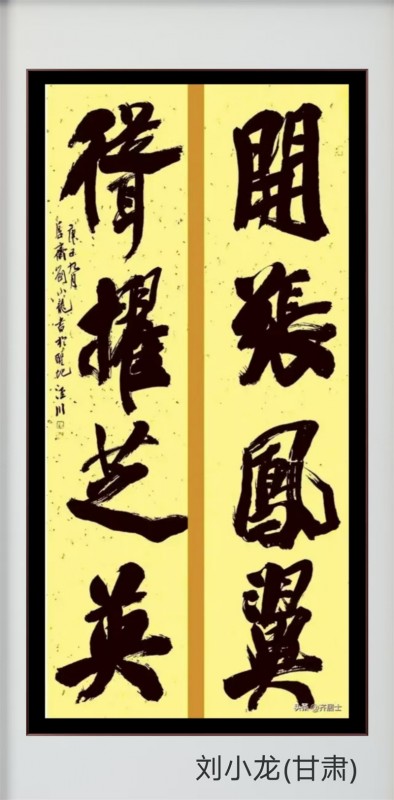 開張鳳翼
聳擢芝英
庚子九月
齋劉小龍書於聖地涇川
头条 @齐居士
刘小龙(甘肃)